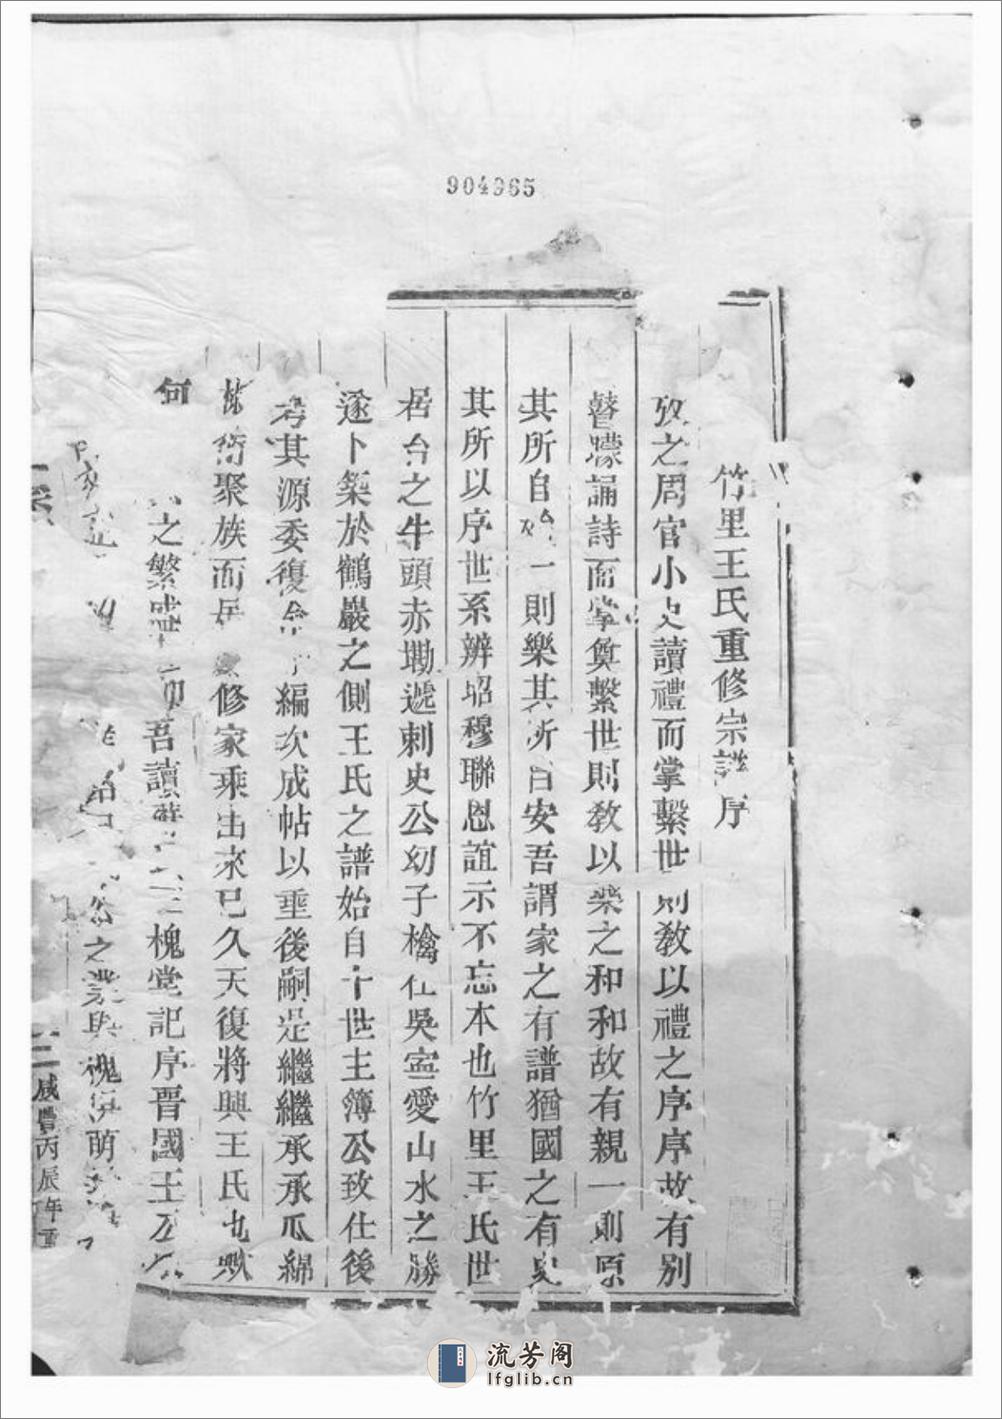 904965
竹里王氏重修宗譜序
攷之周官小史讀禮而掌繫世則敎以禮之序序故有別
瞽矇誦詩而掌奠繫世則敎以樂之和和故有親一則原
其所自一則樂其所自安吾謂家之有譜猶國之有史
其所以序世系辨昭穆聯恩誼示不忘本也竹里王氏世
居台之牛頭赤塸遞刺史公幼子檎仕吳寧愛山水之勝
遂卜築於鶴巖之側王氏之譜始自十世主簿公致仕後
考其源委復編次成帖以垂後嗣是繼繼承承瓜綿
聚族而居修家乘由來已久天復將興王氏也歟
何之繁盛吾讀槐堂記序晉國王公
之叢與槐萌
咸豐丙辰年重
流芳阁
lfglib.cn